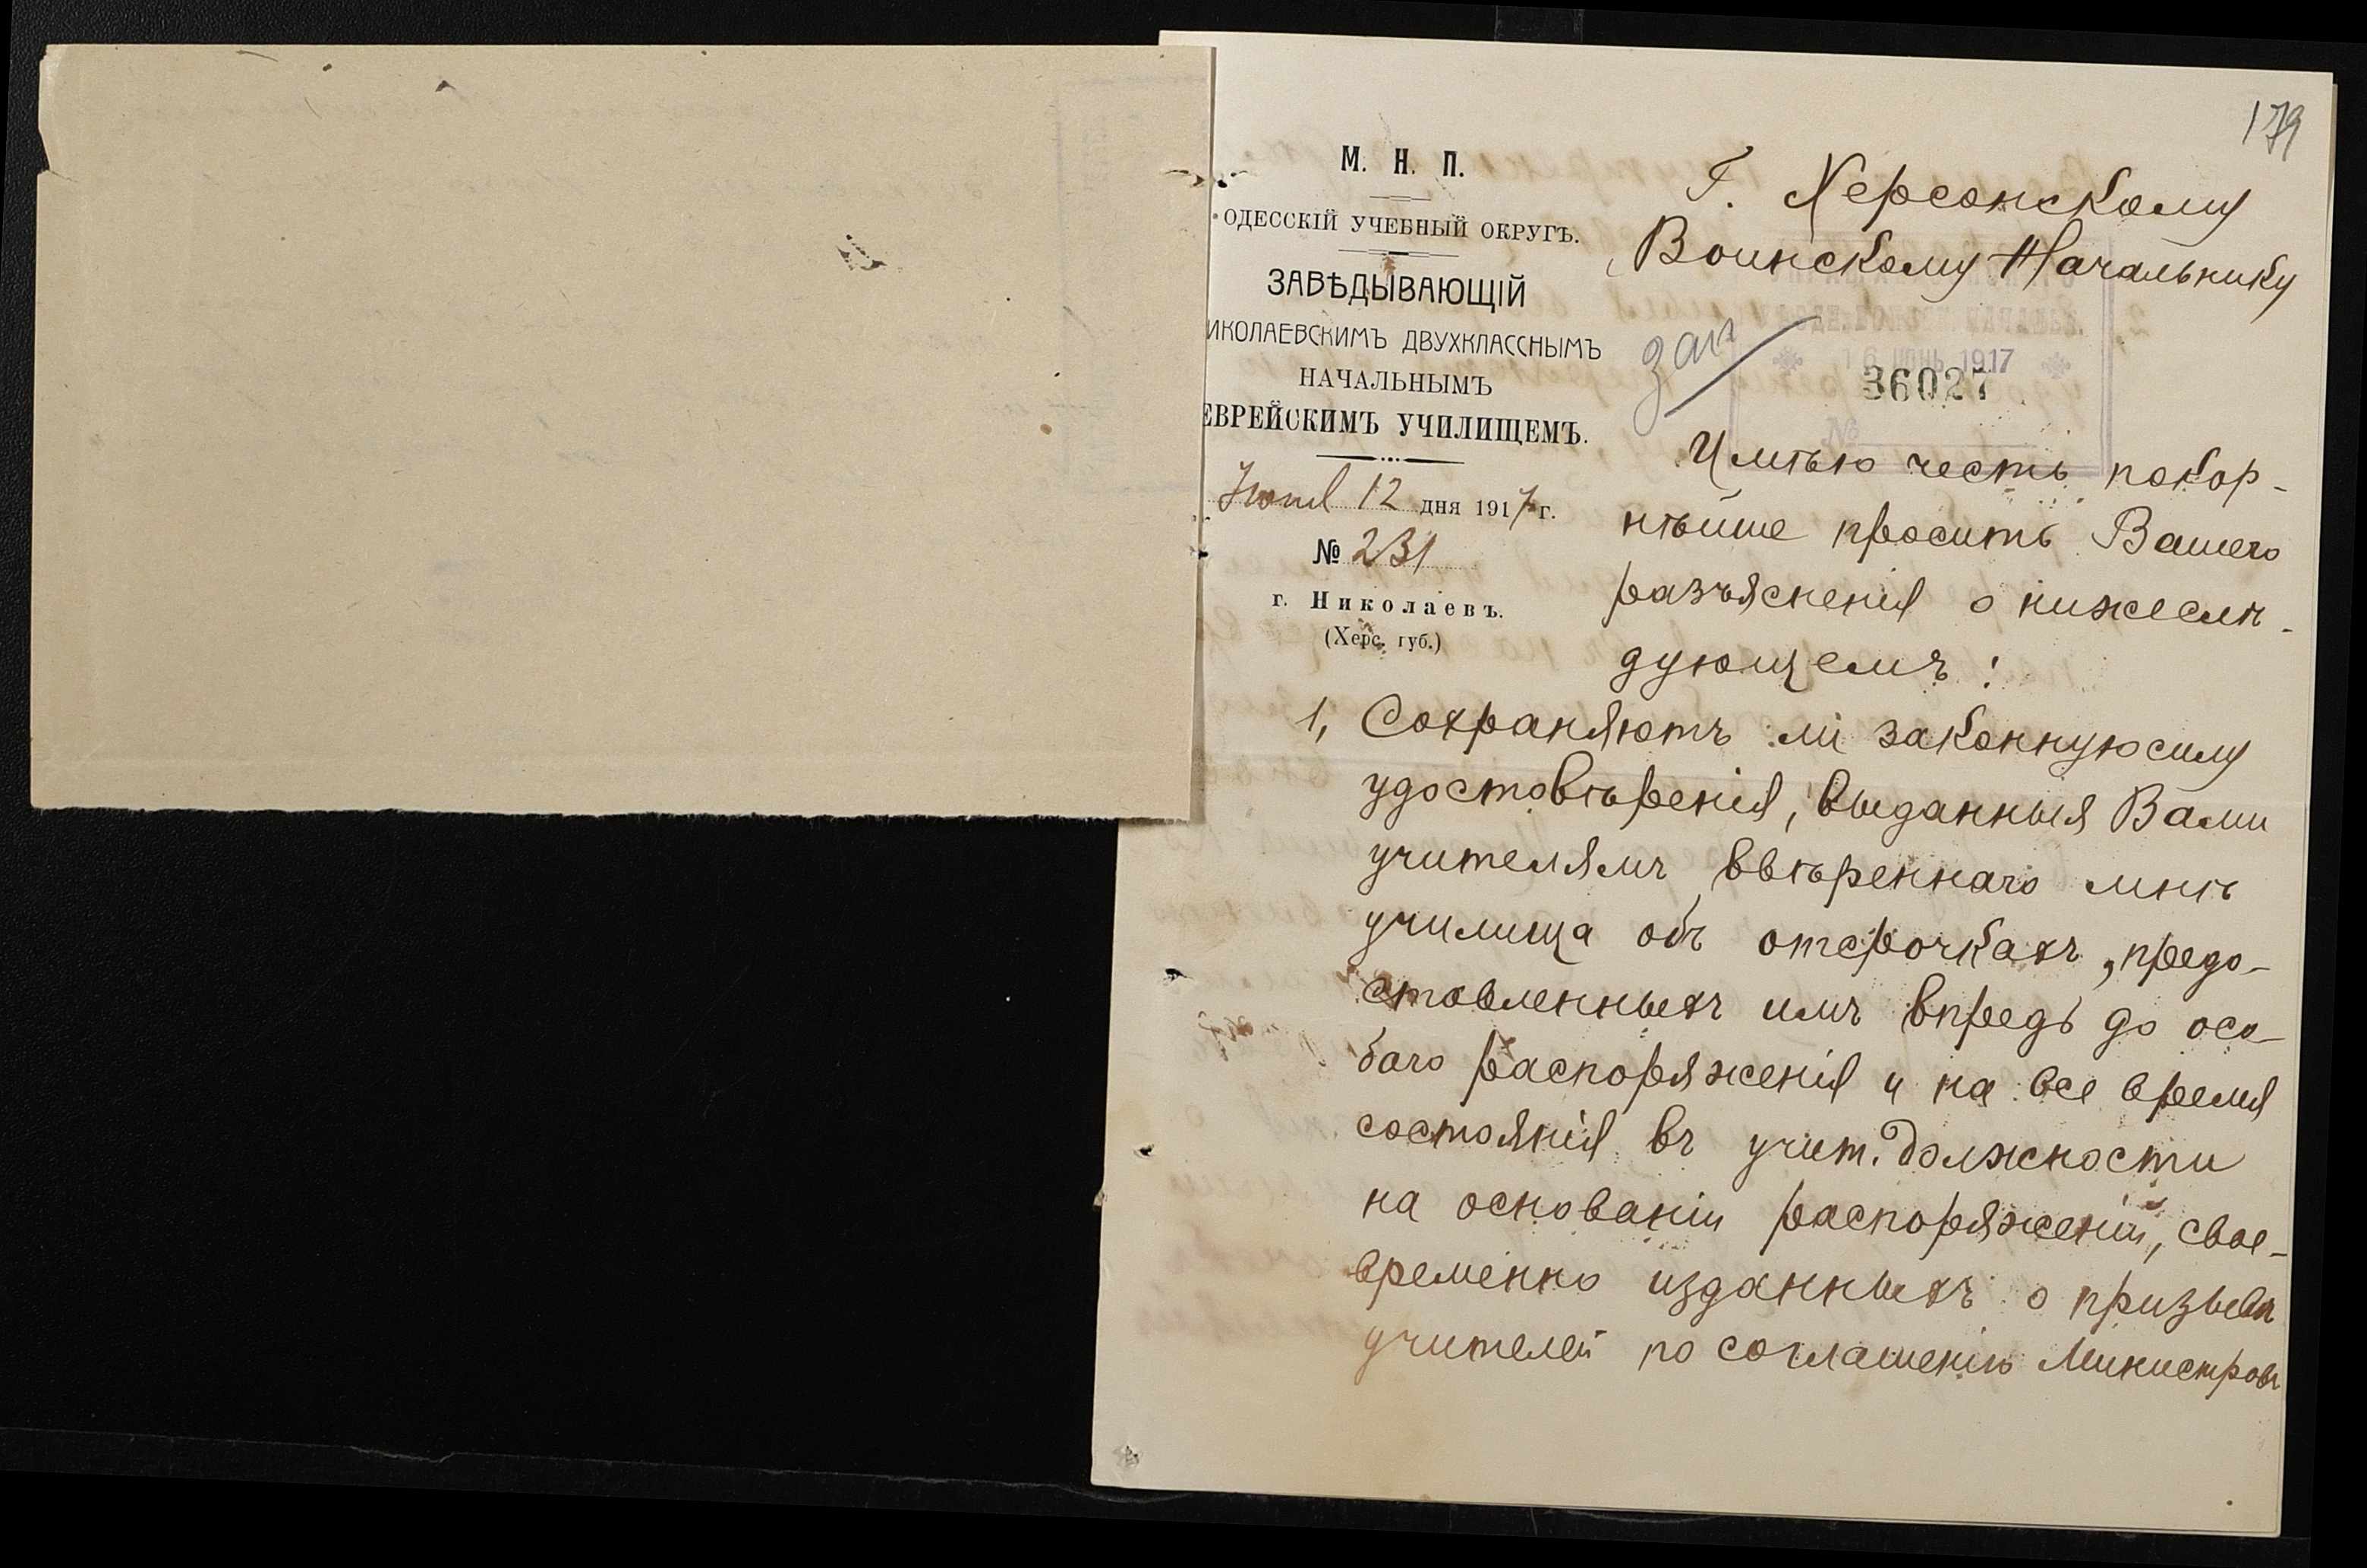 179
М. Н. П.
ОДЕССКІЙ УЧЕБНЫЙ ОКРУГЪ.
ЗАВѢДЫВАЮЩІЙ
ИКОЛАЕВСКИМЪ ДВУХКЛАССНЫМЪ
НАЧАЛЬНЫМЪ
ЕВРЕЙСКИМЪ УЧИЛИЩЕМЪ.
Іюня 12 дня 1917 г.
№ 231
г. Николаевъ.
(Херс. губ.)
Г. Херсонскому
Воинскому Начальнику
16 ІЮНЬ 1917
36027
№
Имѣю честь покор-
нѣйше просить Вашего
разъясненія о нижеслѣ-
дующемъ:
1, Сохраняютъ ли законную силу
удостовѣренія, выданныя Вами
учителямъ ввѣреннаго мнѣ
училища объ отсрочкахъ, предо-
ставленныхъ имъ впредь до осо-
баго распоряженія и на все время
состоянія въ учит. должности
на основаніи распоряженій, свое-
временно изданныхъ о призывѣ
учителей по соглашенію Министровъ